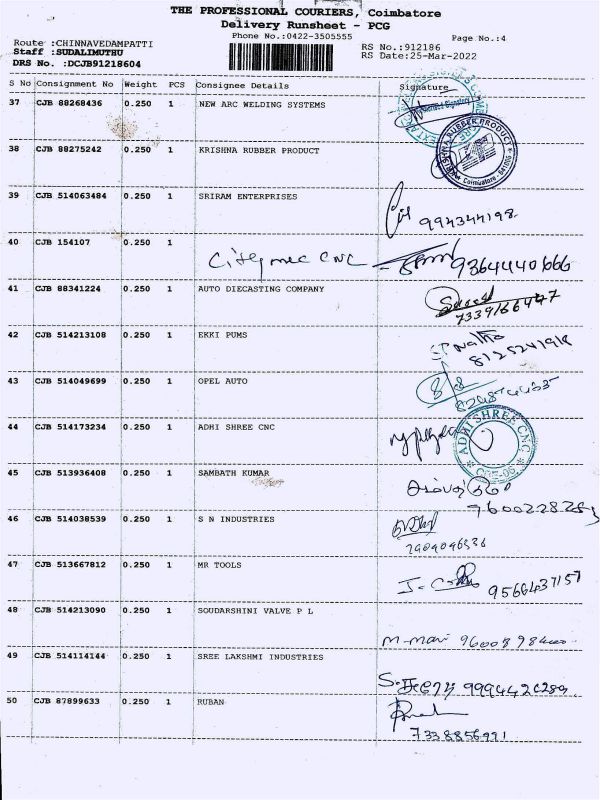 THE PROFESSIONAL COURIERS, Coimbatore
Delivery Runsheet - PCG
Phone No.:0422-3505555
Page No.:4
Route :CHINNAVEDAMPATTI
RS No.:912186
Staff :SUDALIMUTHU
RS Date:25-Mar-2022
DRS No. :DCJB91218604
S No Consignment No Weight PCS Consignee Details Signature
37 CJB 88268436 0.250 1 NEW ARC WELDING SYSTEMS
38 CJB 88275242 0.250 1 KRISHNA RUBBER PRODUCT
KRISHNA RUBBER PRODUCT
39 CJB 514063484 0.250 1 SRIRAM ENTERPRISES
994344198
40 CJB 154107 0.250 1
Citymec CNC 9364440666
41 CJB 88341224 0.250 1 AUTO DIECASTING COMPANY
42 CJB 514213108 0.250 1 EKKI PUMS
43 CJB 514049699 0.250 1 OPEL AUTO
44 CJB 514173234 0.250 1 ADHI SHREE CNC
ADHI SHREE CNC
45 CJB 513936408 0.250 1 SAMBATH KUMAR
46 CJB 514038539 0.250 1 S N INDUSTRIES
47 CJB 513667812 0.250 1 MR TOOLS
9566437157
48 CJB 514213090 0.250 1 SOUDARSHINI VALVE P L
49 CJB 514114144 0.250 1 SREE LAKSHMI INDUSTRIES
50 CJB 87899633 0.250 1 RUBAN
7338856991